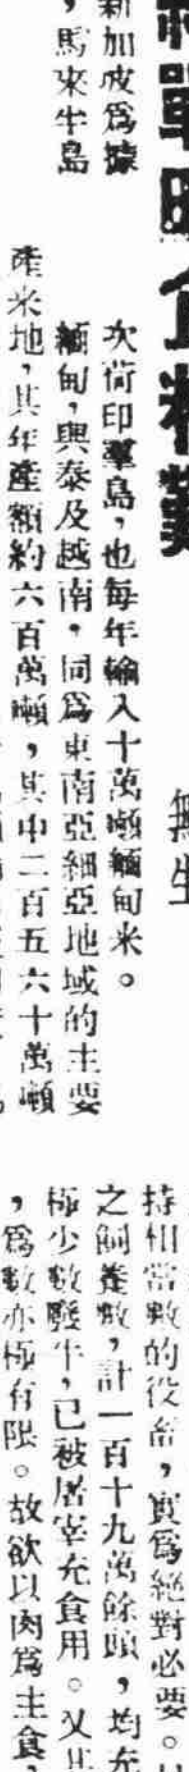 戰時食糧難
無生
新加坡爲據
，馬來半島
次荷印羣島，也每年輸入十萬噸緬甸米。
緬甸，與泰及越南，同爲東南亞細亞地域的主要
產米地，其年產額約六百萬噸，其中二百五六十萬噸
持相當數的役畜，實爲絕對必要。
之飼養數，計一百十九萬餘頭，均充
極少數廢牛，已被屠宰充食用。又其
，爲數亦極有限。故欲以肉爲主食，